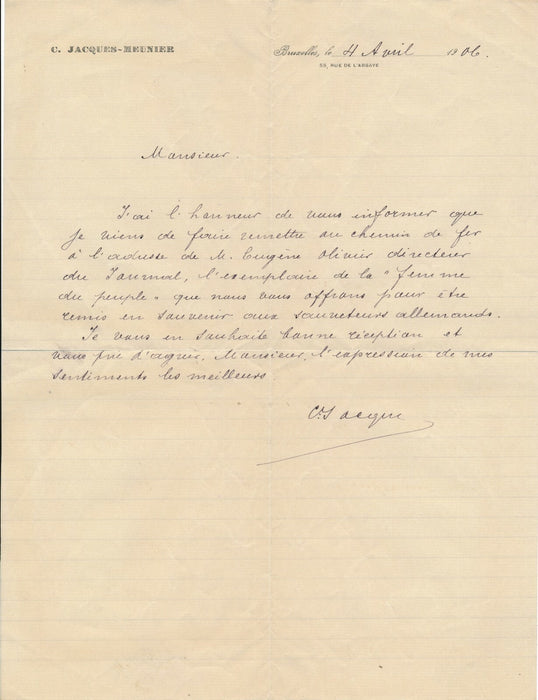 C. JACQUES-MEUNIER
Bruxelles, le 4 Avril 1906.
59, RUE DE L'ABBAYE
Monsieur.
J'ai l'honneur de vous informer que
je viens de faire remettre au chemin de fer
à l'adresse de M. Eugène Olivier directeur
du Journal, l'exemplaire de la "femme
du peuple" que nous vous offrons pour être
remis en souvenir aux sauveteurs allemands.
Je vous en souhaite bonne réception et
vous prie d'agréer, Monsieur, l'expression de mes
sentiments les meilleurs.
C. Jacques